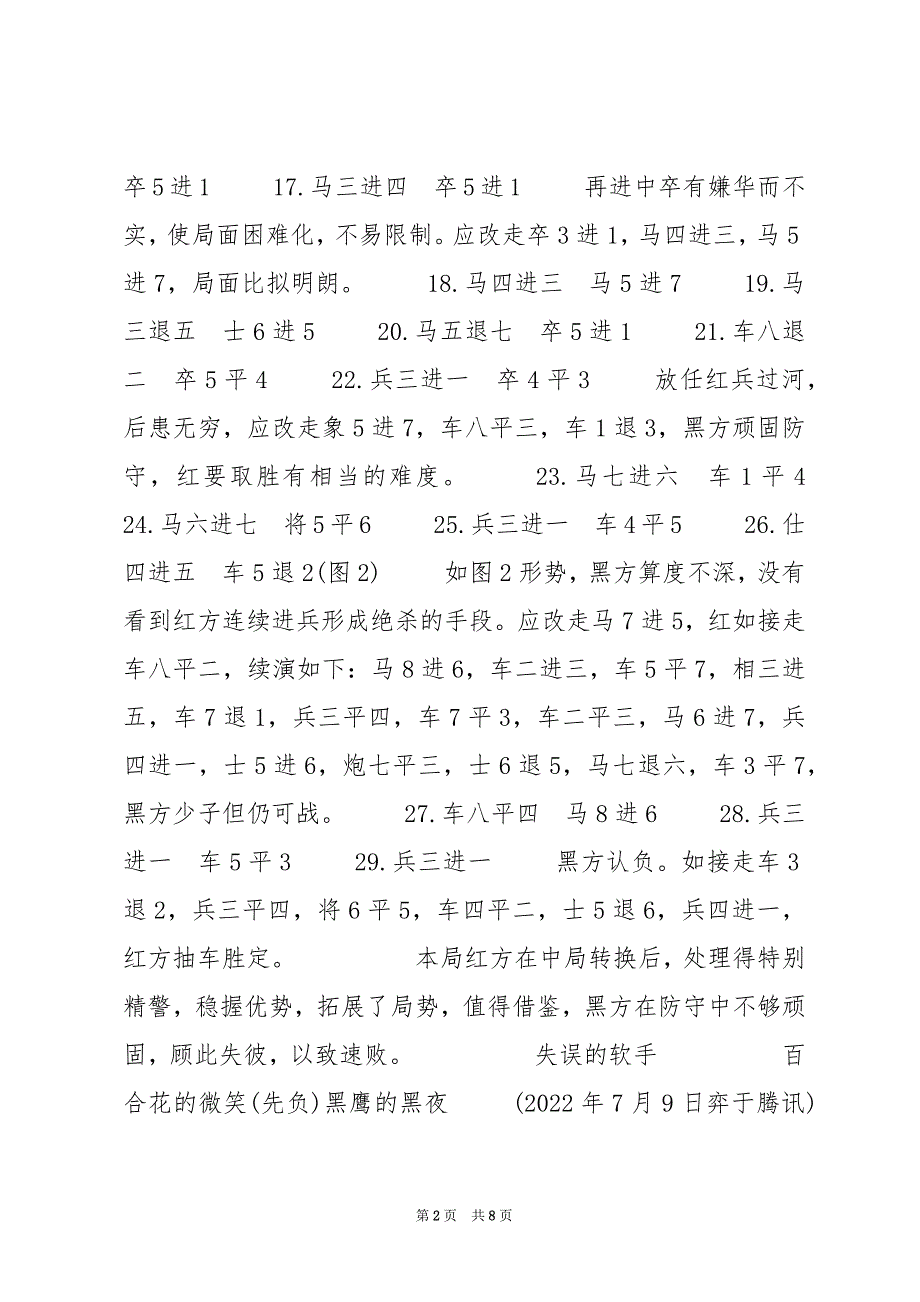 卒5进1　　17.马三进四　卒5进1　　再进中卒有嫌华而不
实，使局面困难化，不易限制。应改走卒3进1，马四进三，马5
进7，局面比拟明朗。　　18.马四进三　马5进7　　19.马
三退五　士6进5　　20.马五退七　卒5进1　　21.车八退
二　卒5平4　　22.兵三进一　卒4平3　　放任红兵过河，
后患无穷，应改走象5进7，车八平三，车1退3，黑方顽固防
守，红要取胜有相当的难度。　　23.马七进六　车1平4
24.马六进七　将5平6　　25.兵三进一　车4平5　　26.仕
四进五　车5退2(图2)　　如图2形势，黑方算度不深，没有
看到红方连续进兵形成绝杀的手段。应改走马7进5，红如接走
车八平二，续演如下：马8进6，车二进三，车5平7，相三进
五，车7退1，兵三平四，车7平3，车二平三，马6进7，兵
四进一，士5进6，炮七平三，士6退5，马七退六，车3平7，
黑方少子但仍可战。　　27.车八平四　马8进6　　28.兵三
进一　车5平3　　29.兵三进一　　黑方认负。如接走车3
退2，兵三平四，将6平5，车四平二，士5退6，兵四进一，
红方抽车胜定。　　　　本局红方在中局转换后，处理得特别
精警，稳握优势，拓展了局势，值得借鉴，黑方在防守中不够顽
固，顾此失彼，以致速败。　　　　失误的软手　　　　百
合花的微笑(先负)黑鹰的黑夜　　(2022年7月9日弈于腾讯)
第2页　共8页